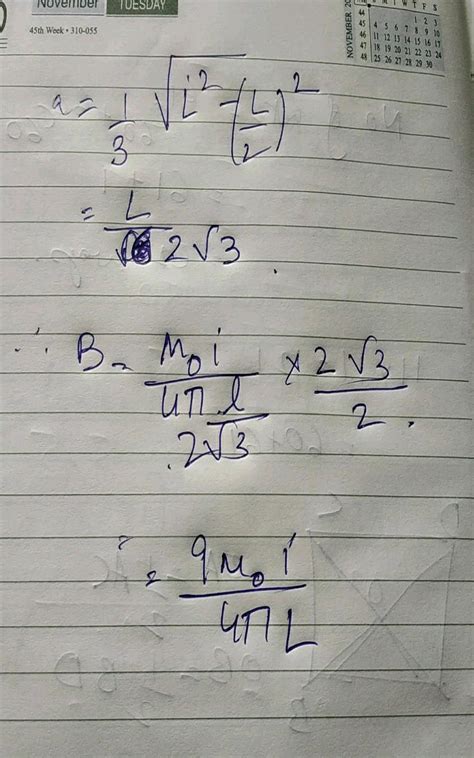 November TUESDAY
45th Week • 310-055
NOVEMBER
M T W T F S
44 1 2 3
45 4 5 6 7 8 9 10
46 11 12 13 14 15 16 17
47 18 19 20 21 22 23 24
48 25 26 27 28 29 30
a = 1/3 √(L² - (L/2)²)
= L/(2√3)
∴ B = μ₀ i/(4π l/(2√3)) × 2√3/2.
= 9μ₀ i/(4π L)